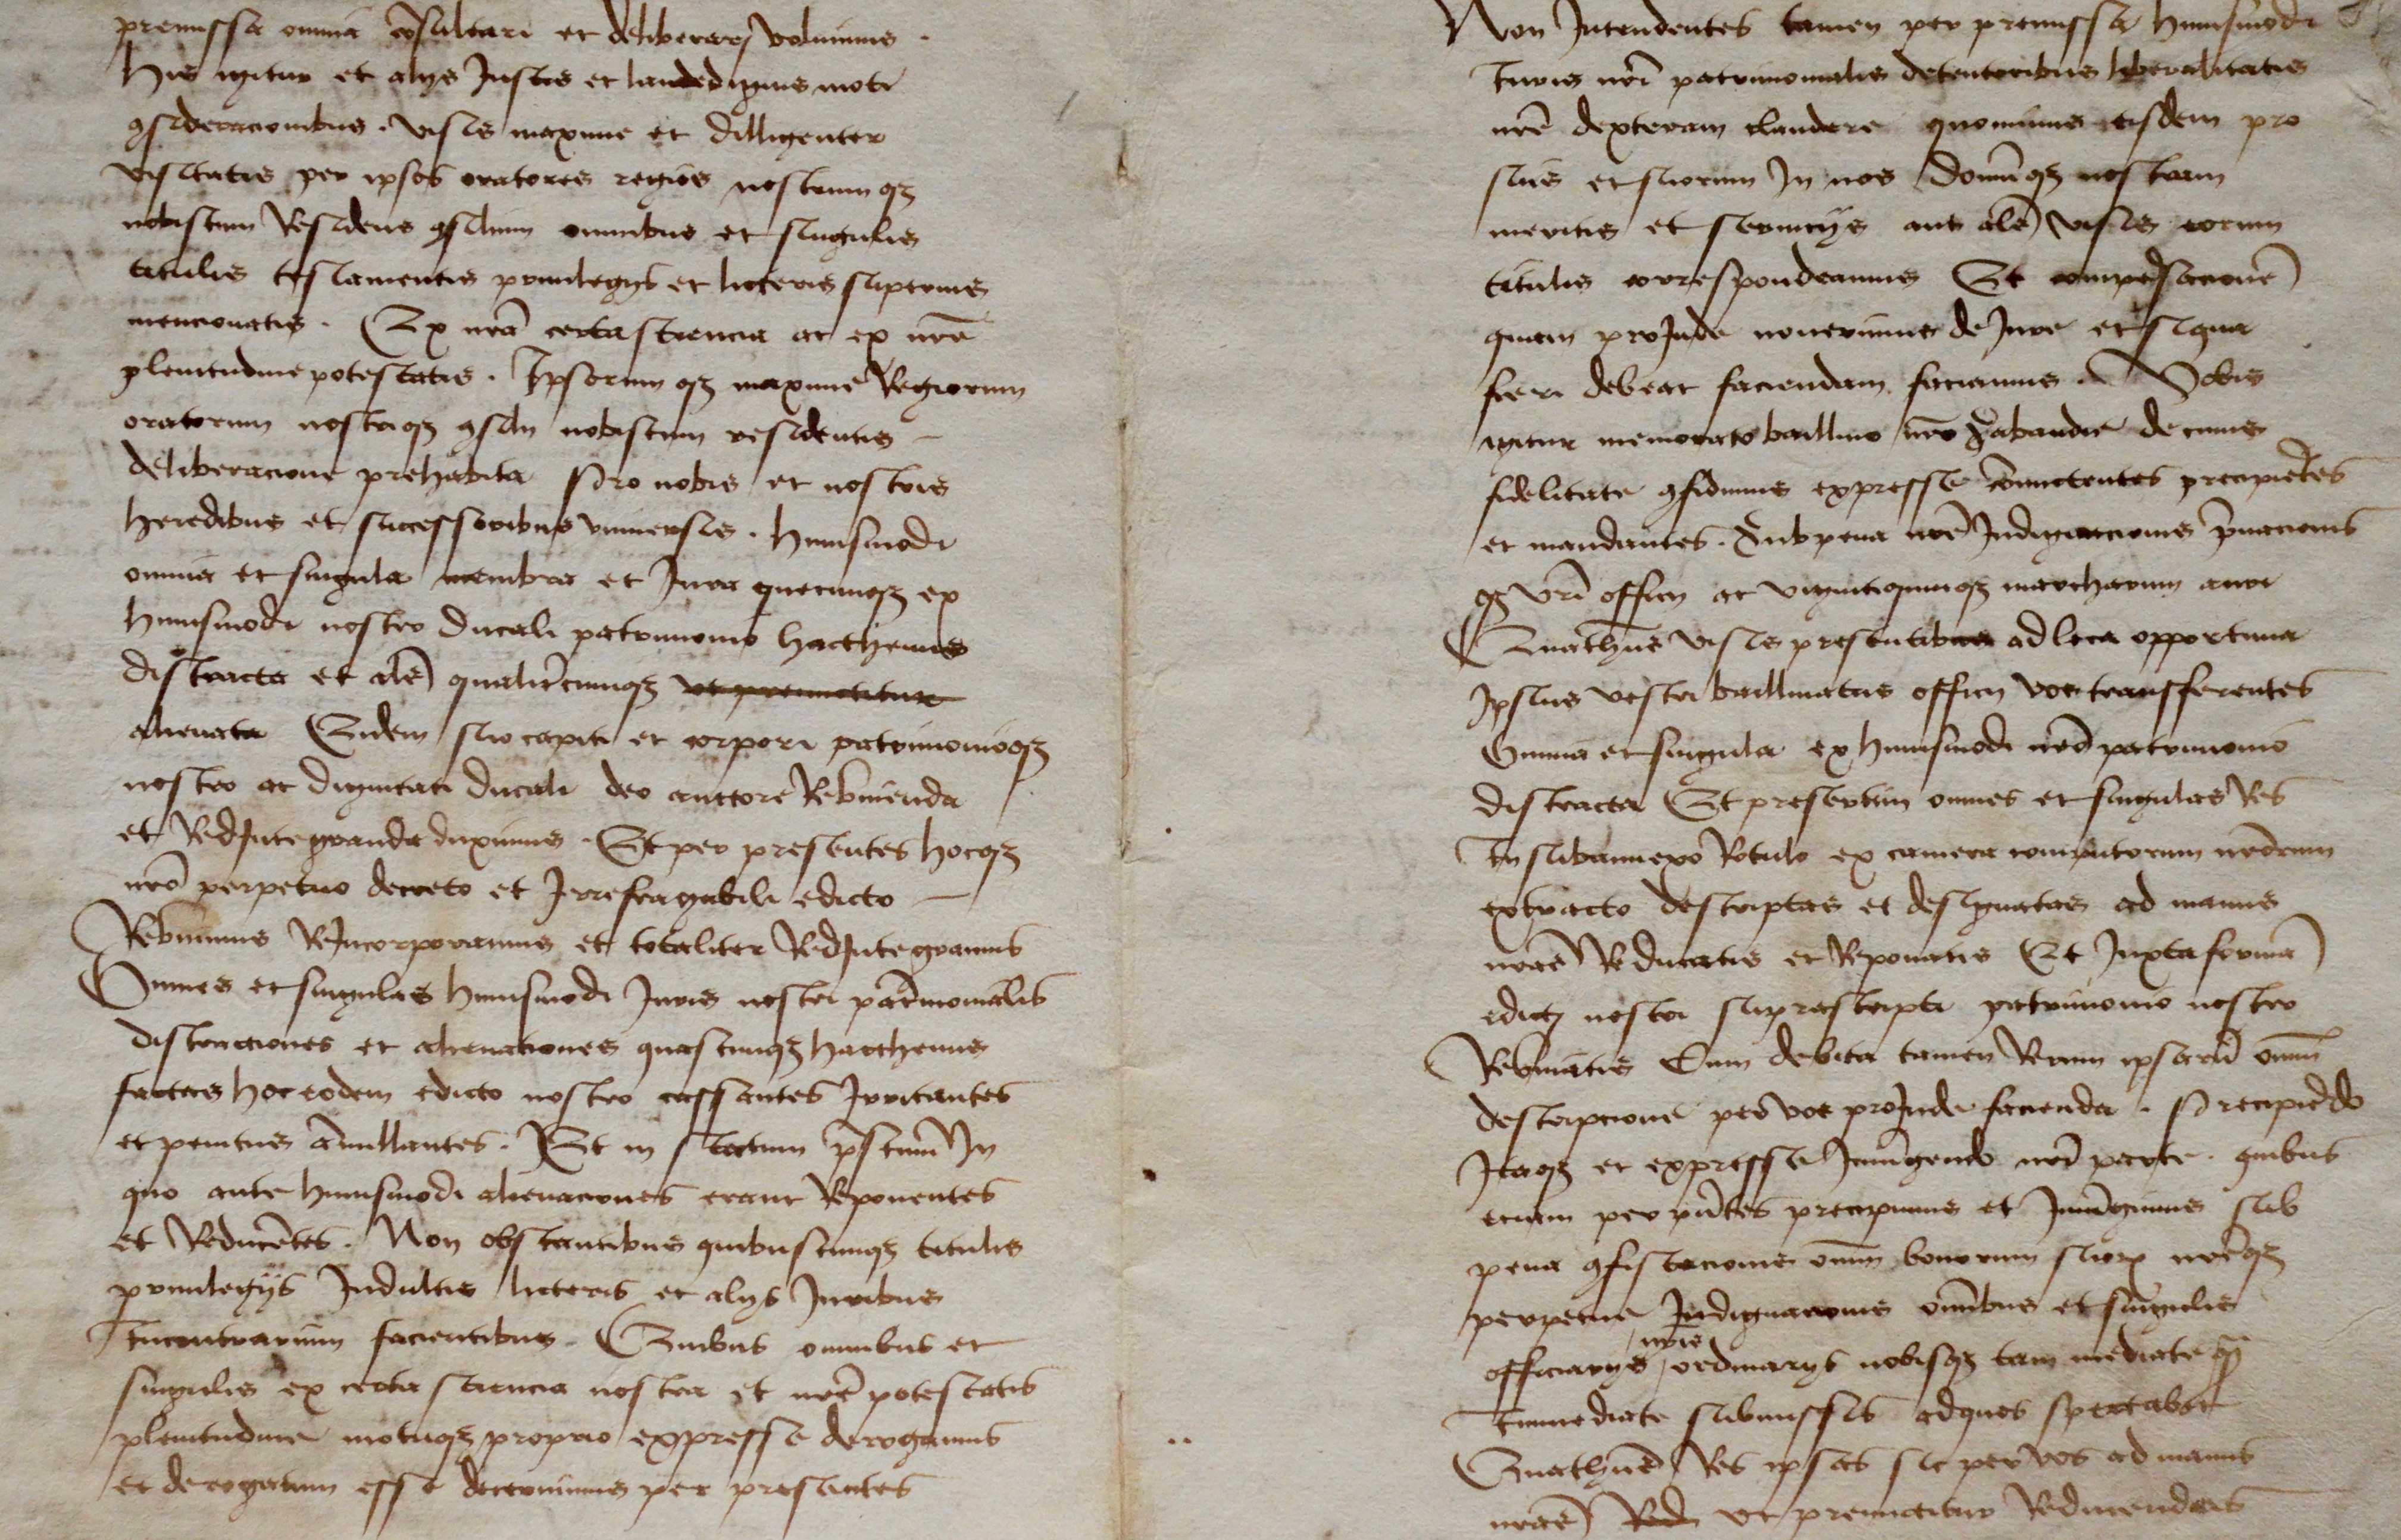 premissa omnia cõsultari et deliberari voluimus .
his igitur et alijs Justis et laudedignis moti
9sideracionibus . visis maxime et dilligenter
visitatis per ipsos oratores regios nostrumqꝫ
nobiscum Residens 9silium omnibus et singulis
titulis testamentis priuilegijs et licteris supernis
mencionatis . Ex nrã certa sciencia ac ex nrẽ
plenitudine potestatis . Ipsorumqꝫ maxime Regiorum
oratorum nostriqꝫ 9silij nobiscum residentis –
deliberacione prehabita Pro nobis et nostris
heredibus et successoribus vniuersis . huiusmodi
omnia et singula membra et Jura quecunqꝫ ex
huiusmodi nostro ducali patrimonio hacthenus
distracta et aliẽ qualitercunqꝫ ut premictitur
alienata Eidem suo capiti et corpori patrimonioqꝫ
nostro ac dignitati ducali deo auctore Revnienda
et Redjntegranda duximus . Et per presentes hocqꝫ
nrõ perpetuo decreto et Jrrefragabili edicto –
Revnimus ReJncorporamus et totaliter Redjntegramus
Omnes et singulas huiusmodi Juris nostri patrimonialis
distractiones et alienationes quascunqꝫ hacthenus
factas hoc eodem edicto nostro cassantes Jrritantes
et penitus ãnullantes . Et in statum pristinũ Jn
quo ante huiusmodi alienaciones erant Reponentes
et Reducẽtes . Non obstantibus quibuscunqꝫ titulis
priuilegijs Jndultis licteris et alijs Juribus
Incontrarium facientibus . Quibus omnibus et
singulis ex certa sciencia nostra et nrẽ potestatis
plenitudine motuqꝫ proprio expresse derogamus
et derogatum esse decernimus per presentes
Non Jntendentes tamen per premissa huiusmodi
Iuris nrĩ patrimonialis detentoribus liberalitatis
nrẽ dexteram claudere quominus eisdem pro
suis et suorum Jn nos domũqꝫ nostram
meritis et seruicijs aut aliẽ visis eorum
titulis correspondeamus Et compẽsacionẽ
quam proJnde nouerimus de Jure et siqua
fieri debeat faciendam faciamus . Vobis
igitur memorato balliuo nrõ Sabaudie de cuius
fidelitate 9fidimus expresse cõmictentes precipiẽtes
et mandantes . Sub pena nrẽ Jndignacionis priuacionis
qꝫ vrĩ officij ac vigintiquinqꝫ marcharum auri
Quathenus visis presentibus ad loca opportuna
Jpsius vestri balliuatus officij vos transferentes
Omnia et singula ex huiusmodi nrõ patrimonio
distracta Et presertim omnes et singulas Res
In subannexo Rotulo ex camera computorum nrõrum
extracto descriptas et designatas ad manus
nrãs Reducatis et Reponatis Et Juxta formã
edicti nostri suprascripti patrimonio nostro
Revniatis Cum debita tamen Rerum ipsarũ omniũ
descripcione per vos proJnde facienda . Precipiẽdo
Jtaqꝫ et expresse Jniũgendo nrĩ parte . quibus
eciam per pñtes precipimus et Jniũgimus sub
pena 9fiscacionis omniũ bonorum suorꝝ nrẽqꝫ
perpetue Jndignacionis omnibus et singulis
nrĩs
officiarijs ordinarijs nobisqꝫ tam mediate qꝫ
Immediate submissis adquos spectabit
Quathenus Res ipsas sic per vos ad manus
nrãs Red ut premictitur Reducendas